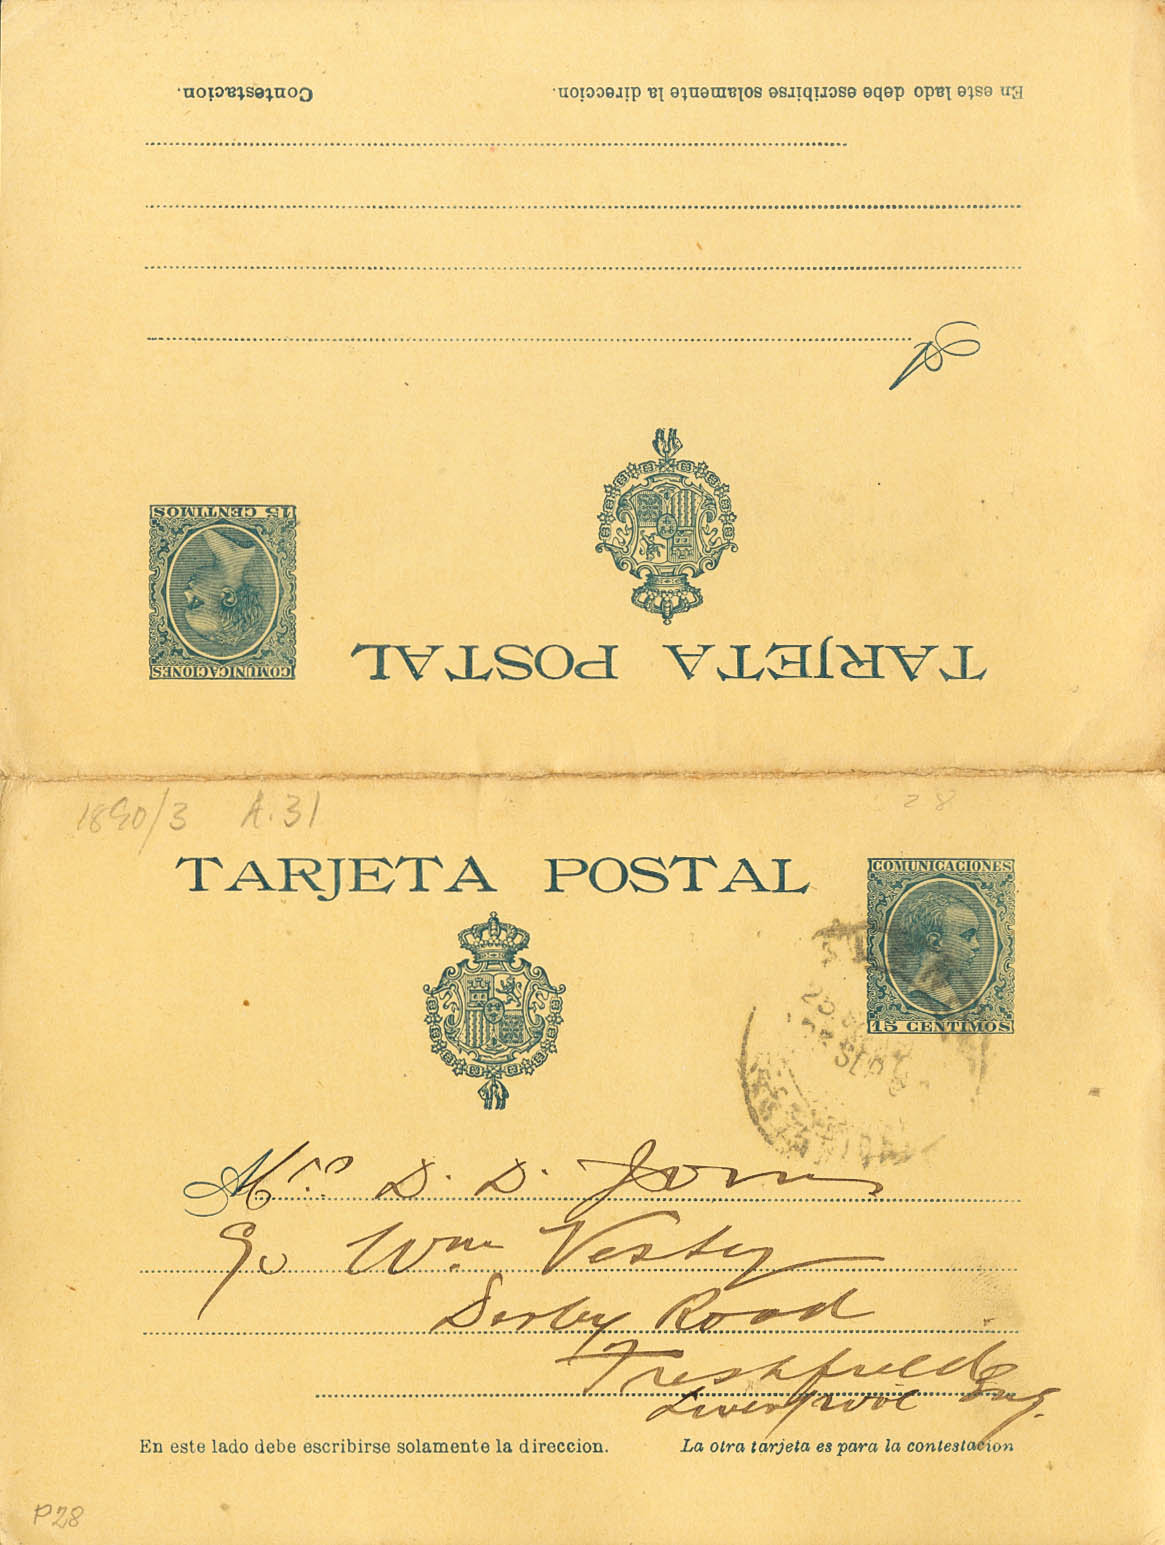 Contestacion.
En este lado debe escribirse solamente la direccion.
A
15 CENTIMOS
COMUNICACIONES
TARJETA POSTAL
1890/3 A.31
28
TARJETA POSTAL
COMUNICACIONES
15 CENTIMOS
SEP
Mrs D. D. Jones
c/o Wm Vestey
Derby Road
Freshfield
Liverpool Eng.
En este lado debe escribirse solamente la direccion.
La otra tarjeta es para la contestacion
P28